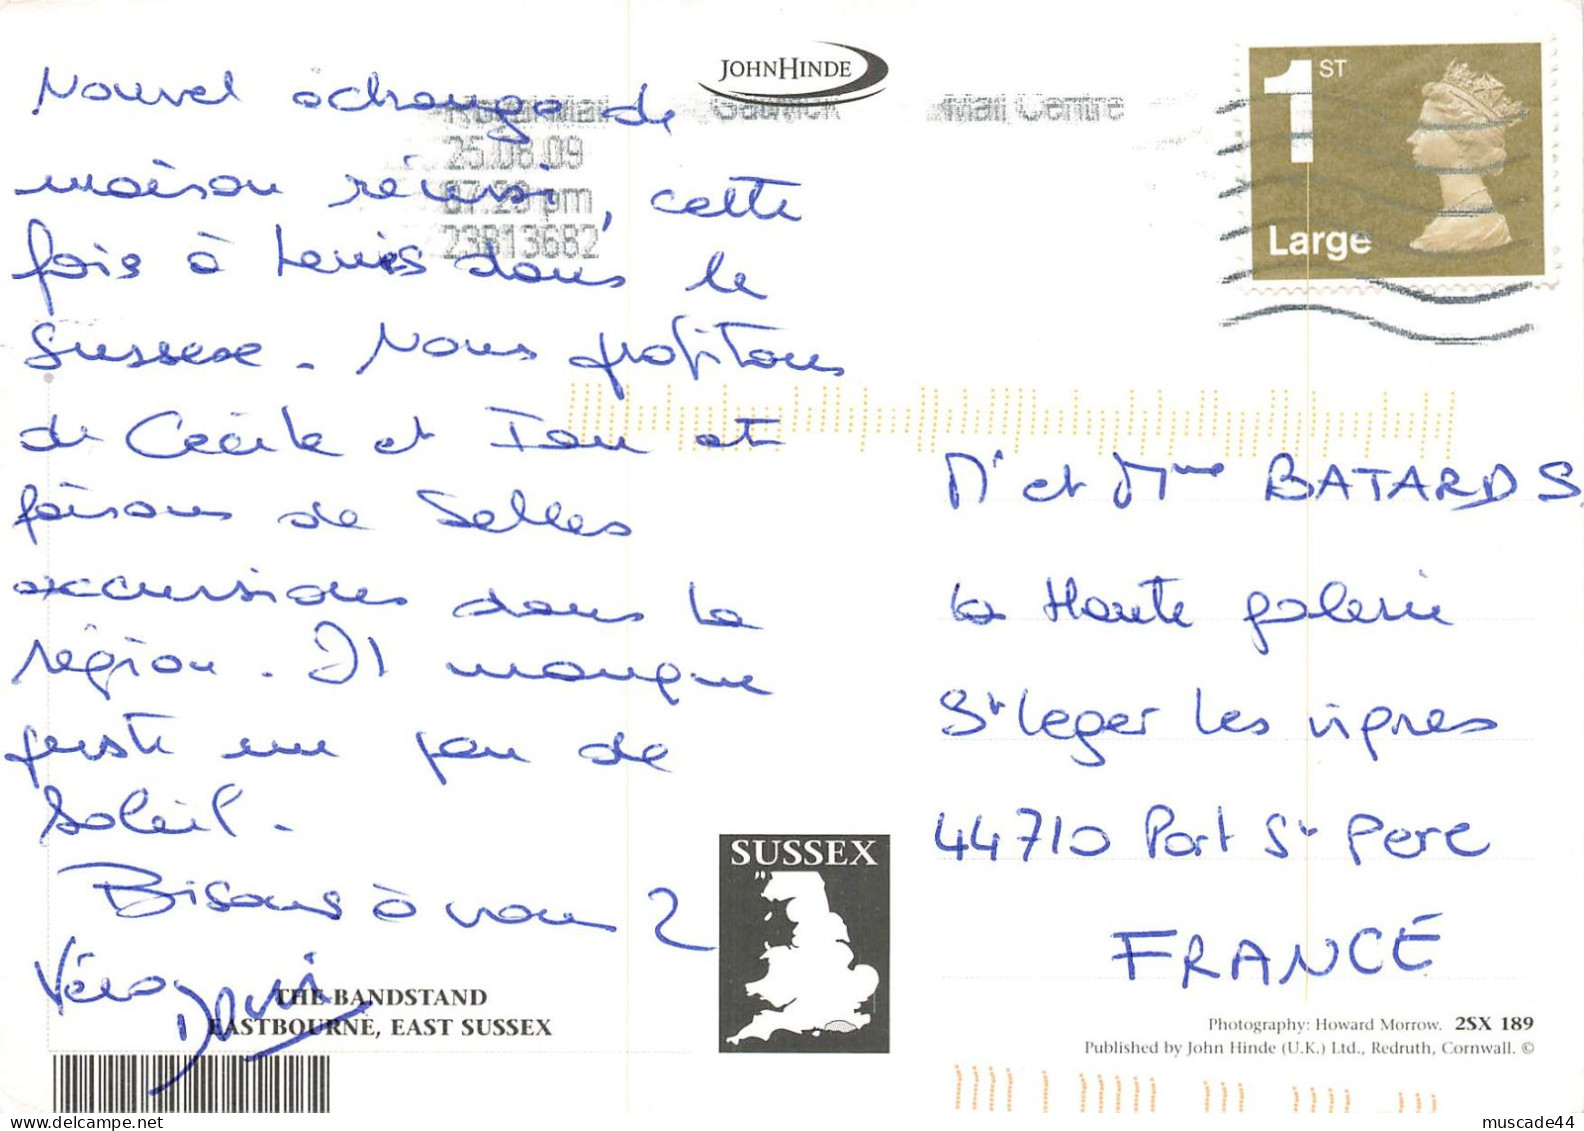 JOHNHINDE
1ST
Large
Royal Mail Gatwick Mail Centre
25.08.09
07:20 pm
23813682
Nouvel échange de
maison réussi, cette
fois à Lewis dans le
Sussex. Nous profitons
de Cécile et Ian et
faisons de belles
excursions dans la
région. Il manque
juste un peu de
soleil.
Bisous à vous 2
Véro
Mr et Mme BATARDS
la Haute galerie
St Leger les vignes
44710 Port St Pere
FRANCE
SUSSEX
THE BANDSTAND
EASTBOURNE, EAST SUSSEX
Photography: Howard Morrow. 2SX 189
Published by John Hinde (U.K.) Ltd., Redruth, Cornwall. ©
muscade44